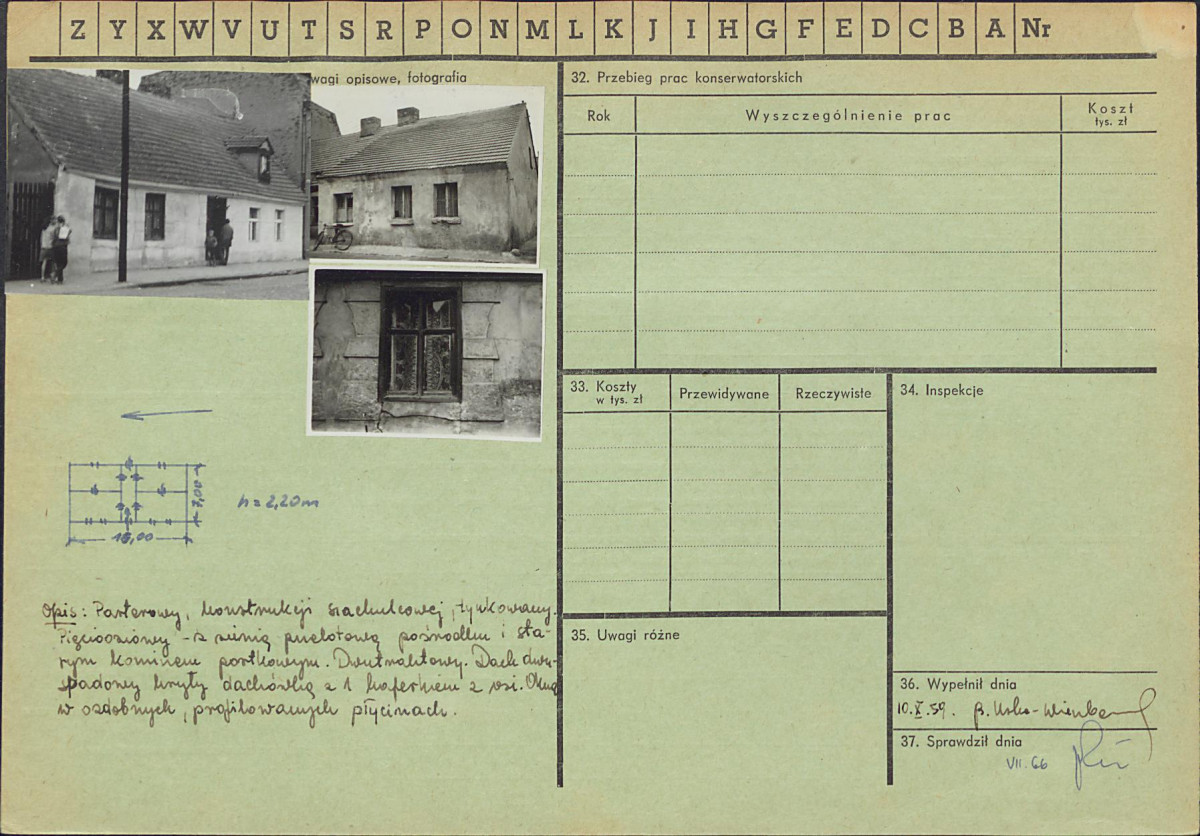 Z Y X W V U T S R P O N M L K J I H G F E D C B A Nr
wagi opisowe, fotografia
h = 2,20 m
7,00
Opis: Parterowy, konstrukcji szachulcowej, tynkowany.
Pięcioosiowy - z sienią przelotową pośrodku i sta-
rym kominem portkowym. Dwutraktowy. Dach dwu-
spadowy kryty dachówką z 1 kaferkiem z osi. Okna
w ozdobnych, profilowanych płycinach.
32. Przebieg prac konserwatorskich
Rok
Wyszczególnienie prac
Koszt
tys. zł
33. Koszty
w tys. zł
Przewidywane
Rzeczywiste
34. Inspekcje
35. Uwagi różne
36. Wypełnił dnia
10.X.59.
37. Sprawdził dnia
VII. 66